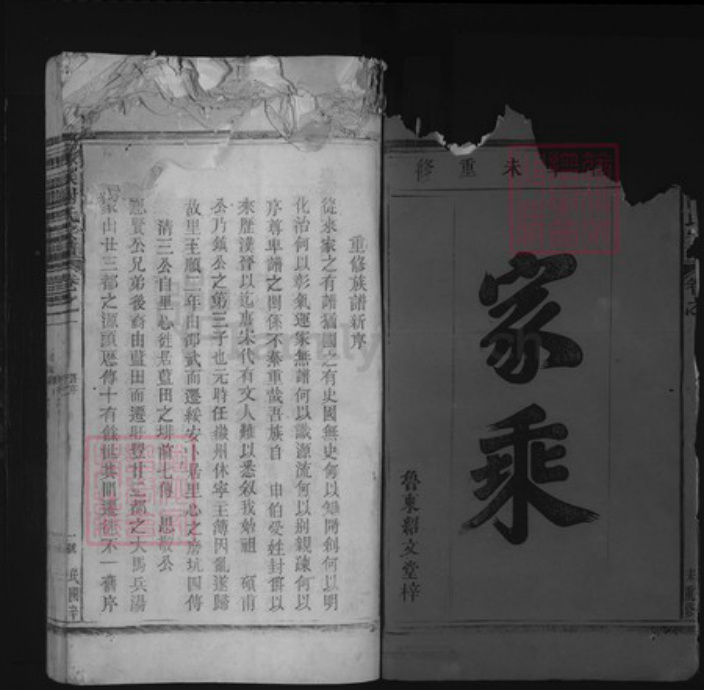 重修
家乘
魯東韜文堂梓
重修族譜新序
從來家之有譜猶國之有史國無史何以知開創何以明
化治何以彰氣運家無譜何以識源流何以別親疎何以
序尊卑譜之關係不綦重哉吾族自 申伯受姓封爵以
來歷漢晉以迄唐宋代有文人難以悉叙我始祖 碩甫
公乃鎮公之第三子也元時任徽州休寧王薄因亂遂歸
故里至順二年由邵武而遷綏安卜居里心之磨坑四傳
清三公自里心徙居藍田之排前七傳 思敬公
賢公兄弟後裔由藍田而遷旴豐廿三都之大馬兵湯
家山廿三都之源頭歷傳十有餘世其間遷徙不一舊序
一號
民國辛